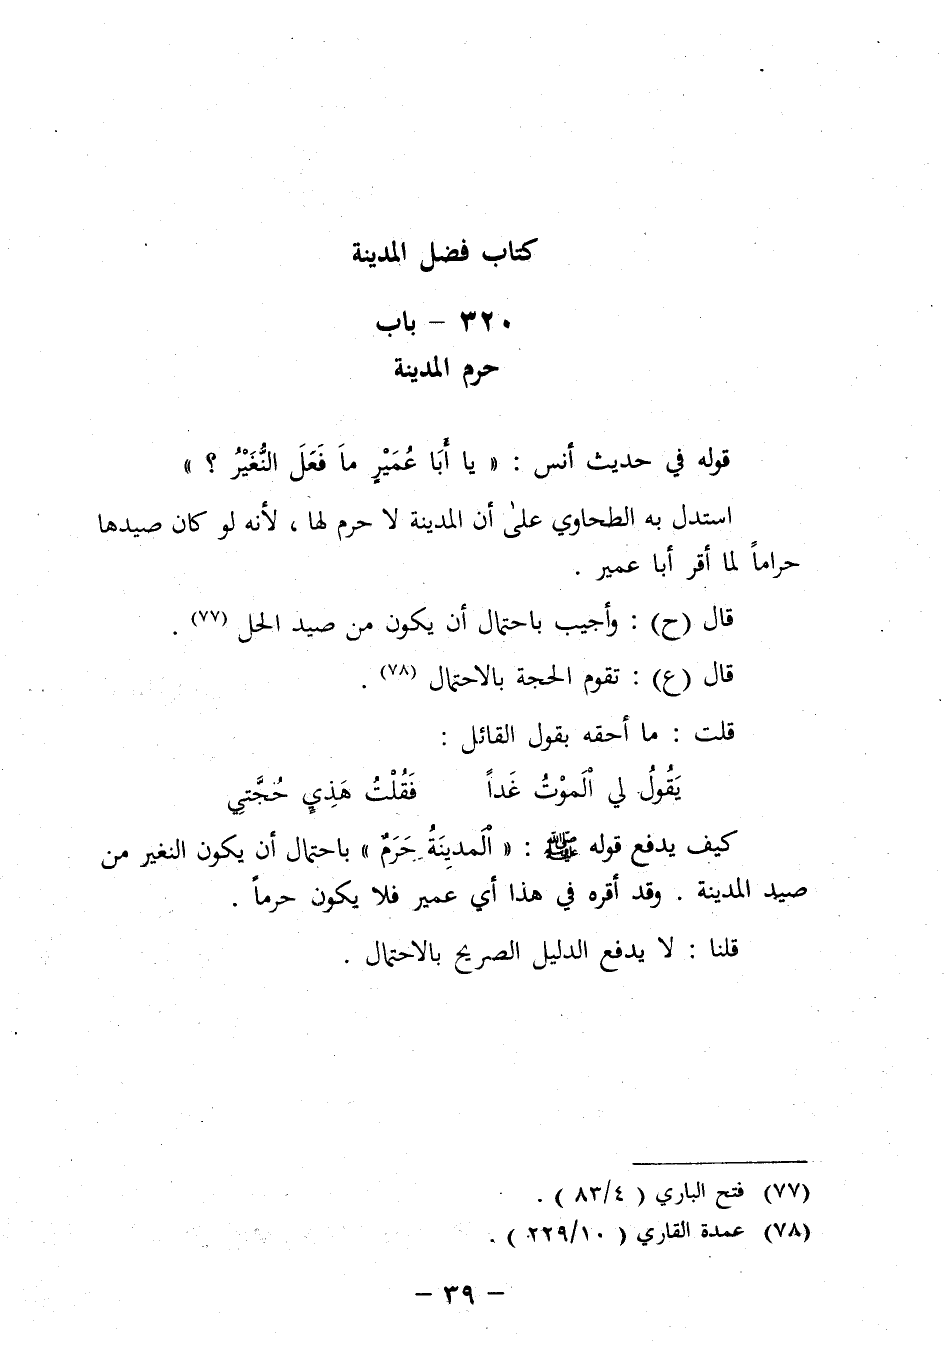 كتاب فضل المدينة
٣٢٠ - باب
حرم المدينة
قوله في حديث أنس : « يا أَبَا عُمَيْرٍ ماَ فَعَلَ النُّغَيْرُ ؟ »
استدل به الطحاوي علىٰ أن المدينة لا حرم لها ، لأنه لو كان صيدها
حراماً لما أقر أبا عمير .
قال (ح) : وأجيب باحتمال أن يكون من صيد الحل (٧٧) .
قال (ع) : تقوم الحجة بالاحتمال (٧٨) .
قلت : ما أحقه بقول القائل :
يَقُولُ لي اْلَموْتُ غَداً فَقُلْتُ هَذِيِ حُجَّتيِ
كيف يدفع قوله ﷺ : « اْلَمدِينَةُ حَرَمٌ » باحتمال أن يكون النغير من
صيد المدينة . وقد أقره في هذا أي عمير فلا يكون حرماً .
قلنا : لا يدفع الدليل الصريح بالاحتمال .
(٧٧) فتح الباري ( ٨٣/٤ ) .
(٧٨) عمدة القاري ( ٢٢٩/١٠ ) .
- ٣٩ -